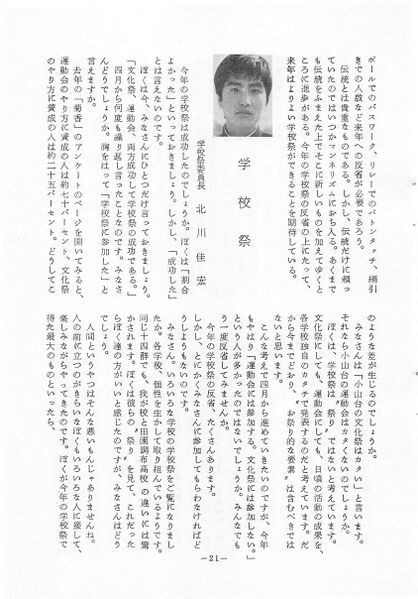 ボールでのパスワーク、リレーでのバトンタッチ、綱引
きでの人数など来年への反省が必要であろう。
伝統とは貴重なものである。しかし、伝統だけに頼っ
ていたのではいつかマンネリズムにおち入る。あくまで
も伝統をふまえた上でそこに新しいものを加えてゆくと
ころに進歩がある。今年の学校祭の反省の上にたって、
来年はよりよい学校祭ができることを期待している。
学校祭
学校祭委員長 北川佳宏
今年の学校祭は成功したのでしょうか。ぼくは「割合
よかった」といっておきましょう。しかし、「成功した」
とは言えないのです。
ぼくは今、みなさんにひとつだけ言っておきましょう。
「文化祭、運動会、両方成功して学校祭の成功である。」
四月から何度も繰り返し言ったことなのです。みなさ
んどうでしょうか。胸をはって「学校祭に参加した」と
言えますか。
去年の「菊香」のアンケートのページを開いてみると、
運動会のやり方に賛成の人は約七十パーセント、文化祭
のやり方に賛成の人は約二十五パーセント。どうしてこ
のような差が生じるのでしょうか。
みなさんは「小山台の文化祭はカタい」と言います。
それなら小山台の運動会はカタくないのでしょうか。
ぼくは、学校祭は"祭り"ではないと考えています。
文化祭にしても、運動会にしても、日頃の活動の成果を、
各学校独自のカタチで発表するのだと考えています。だ
から今までどおり、"お祭り的な要素"は含むべきでは
ないと思います。
こんな考えで四月から進めていきたいのですが、今年
もやはり「運動会には参加する。文化祭には参加しない。」
という人が多かったのではないでしょうか。みんなでも
う一度反省してみませんか。
今年の学校祭の反省、たくさんあります。
しかし、とにかくみなさんに参加してもらわなければど
うしようもないのです。
みなさん。いろいろな学校の学校祭をご覧になりまし
たか。各学校、個性を生かして取り組んでいるようです。
同じ十四群でも、我が校と田園調布高校の違いには驚
かされます。ぼくは彼らの"祭り"を見て、これだった
らぼく達の方がいいと感じたのですが、みなさんはどう
でしょう。
人間というやつはそんな悪いもんじゃありませんね。
人の前に立つのがきらいなぼくもいろいろな人に接して、
楽しみながらやってきたのです。ぼくが今年の学校祭で
得た最大のものといったら、
—21—